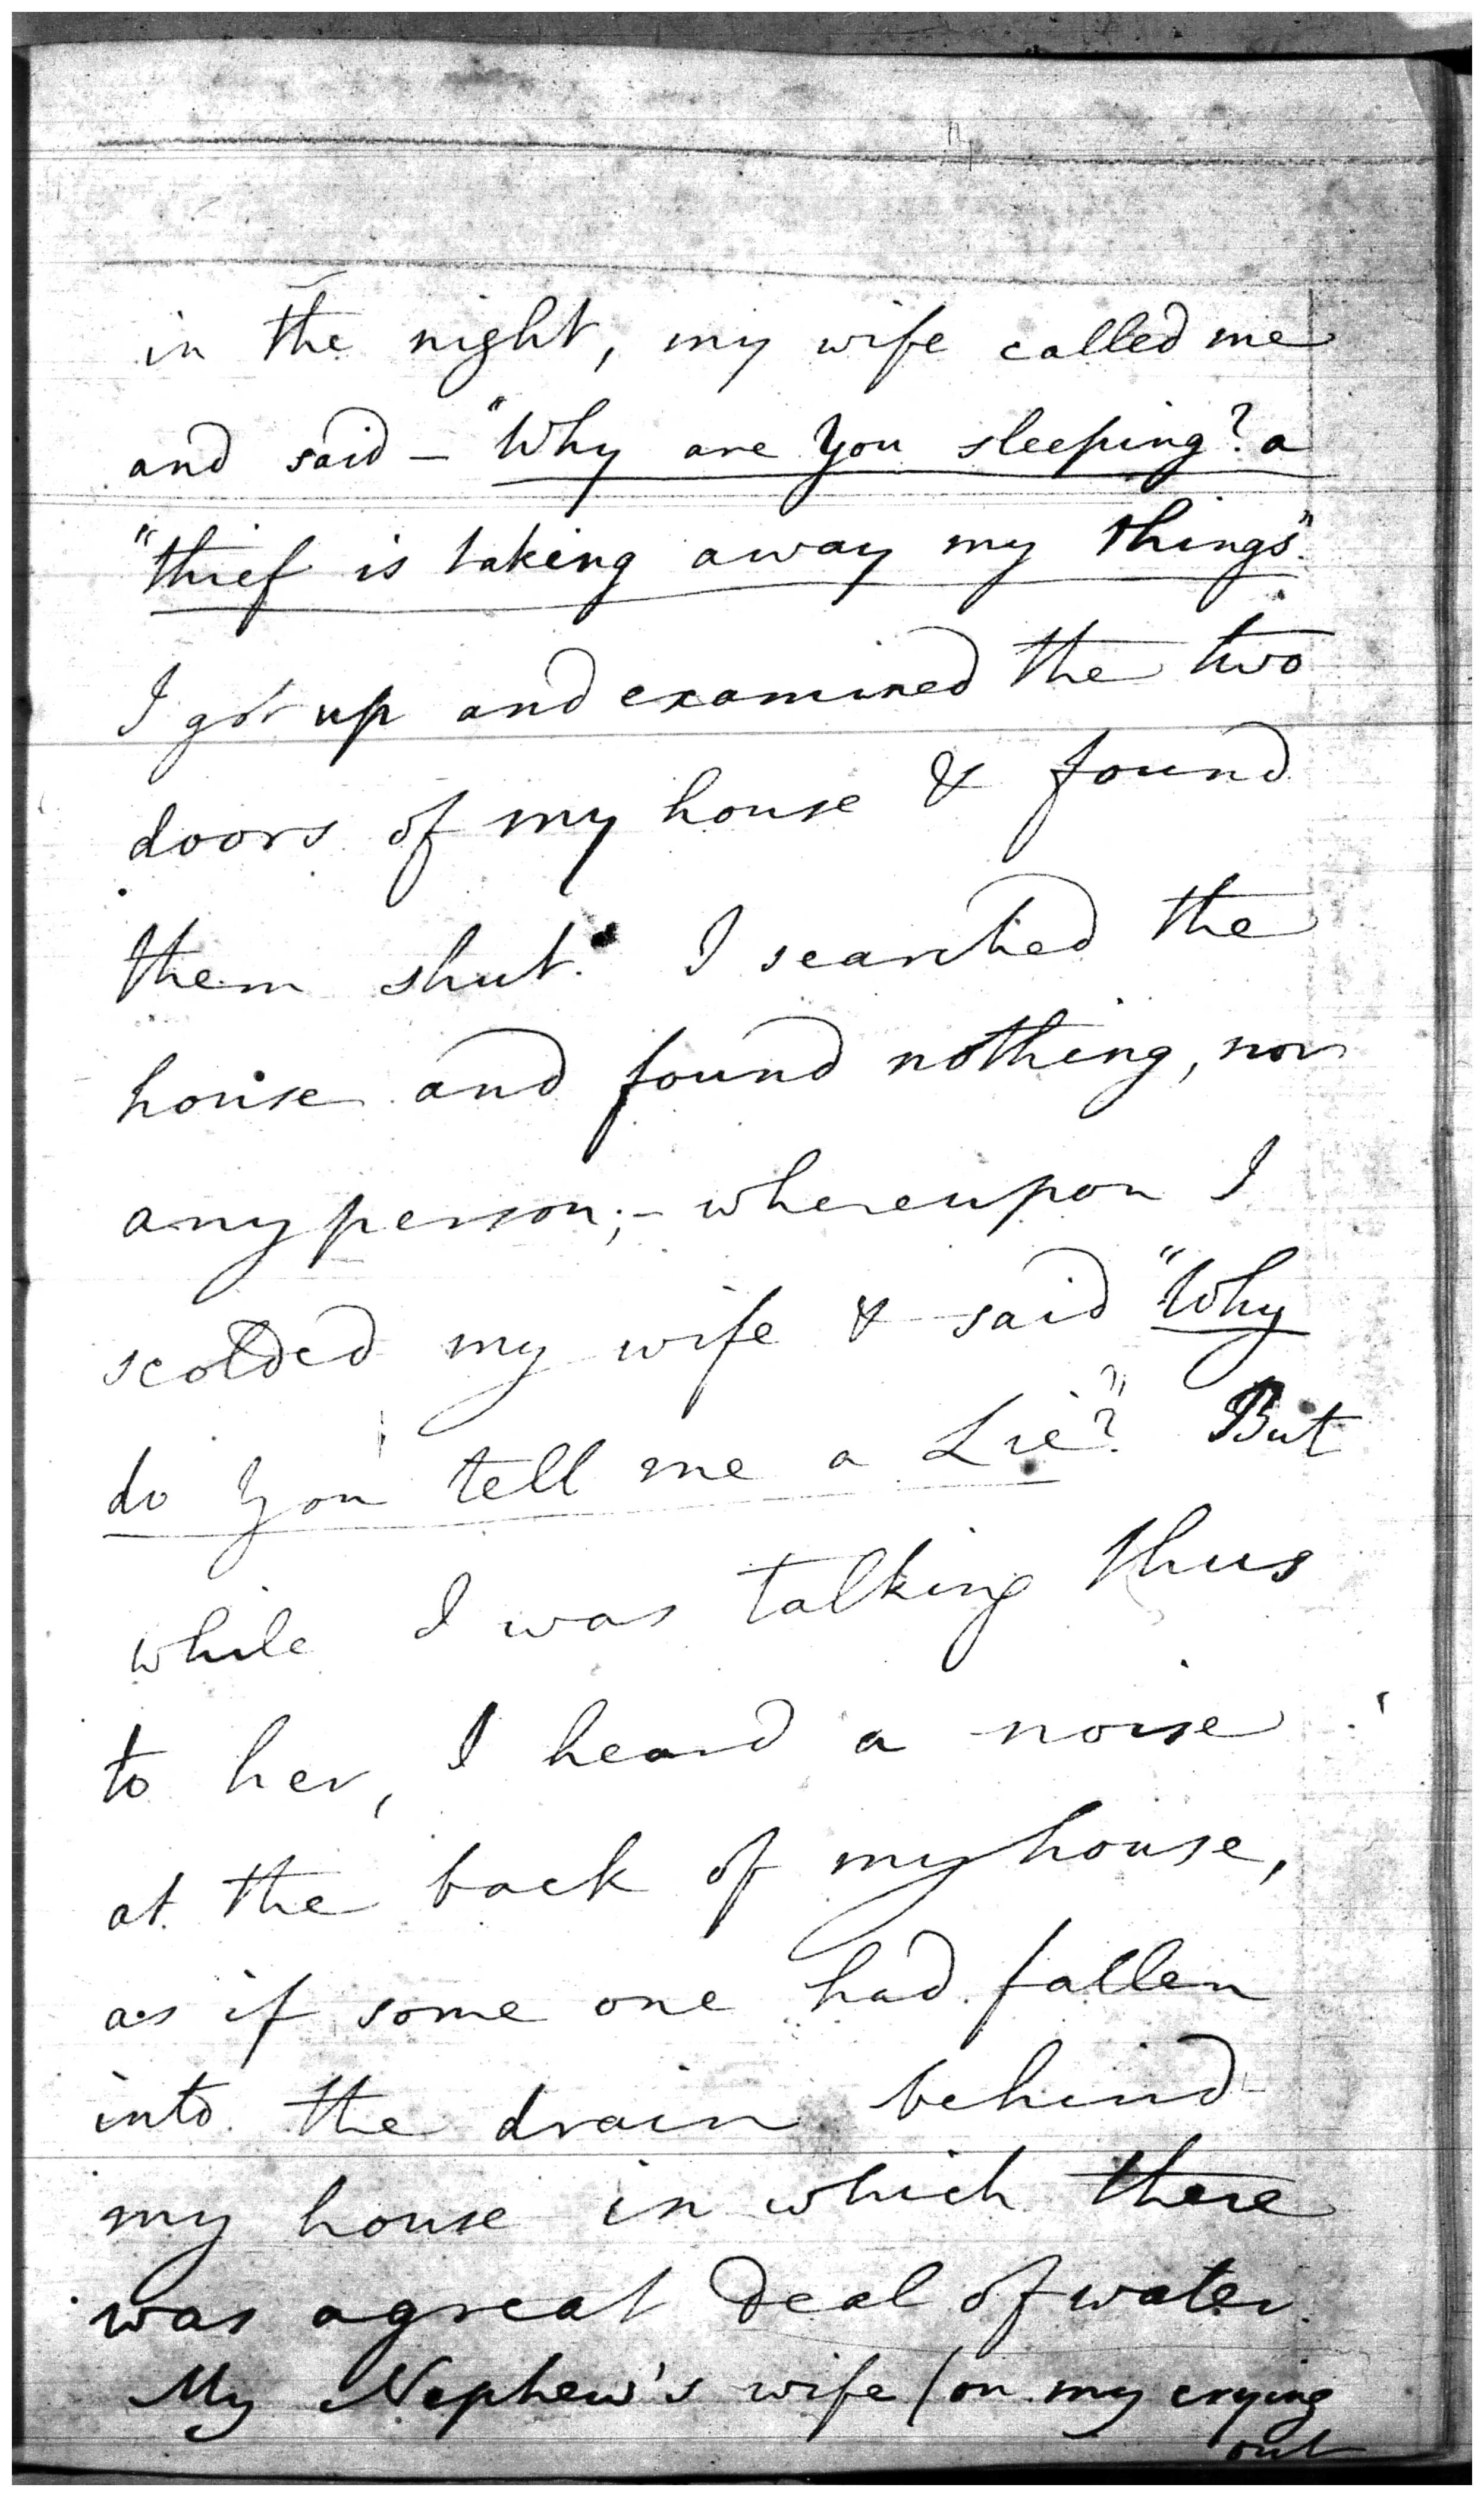 in the night, my wife called me
and said – "Why are you sleeping? a
"thief is taking away my things".
I got up and examined the two
doors of my house & found
them shut. I searched the
house and found nothing, nor
any person; – whereupon I
scolded my wife & said "Why
do you tell me a Lie?" But
while I was talking thus
to her, I heard a noise
at the back of my house,
as if some one had fallen
into the drain behind
my house in which there
was a great deal of water.
My Nephew's wife (on my crying
out